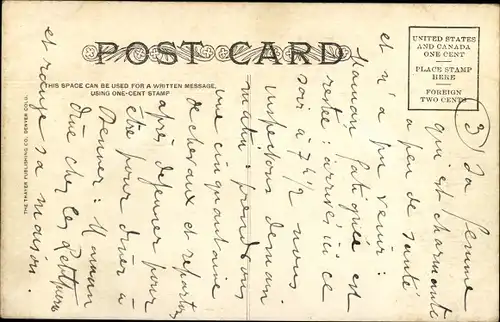 POST CARD
THIS SPACE CAN BE USED FOR A WRITTEN MESSAGE,
USING ONE-CENT STAMP
UNITED STATES
AND CANADA
ONE CENT
PLACE STAMP
HERE
FOREIGN
TWO CENTS
THE THAYER PUBLISHING CO. DENVER COLO.
3) Sa femme
qui est charmante
a peu de santé
et n'a pu venir :
Maman fatiguée est
restée : arrivés ici ce
soir à 7 h 1/2 nous
inspectons demain
matin : prendrons
une cinquantaine
de chevaux et repartons
après déjeuner pour
être pour dîner à
Denver : Maman
dîne chez les
et range sa maison.